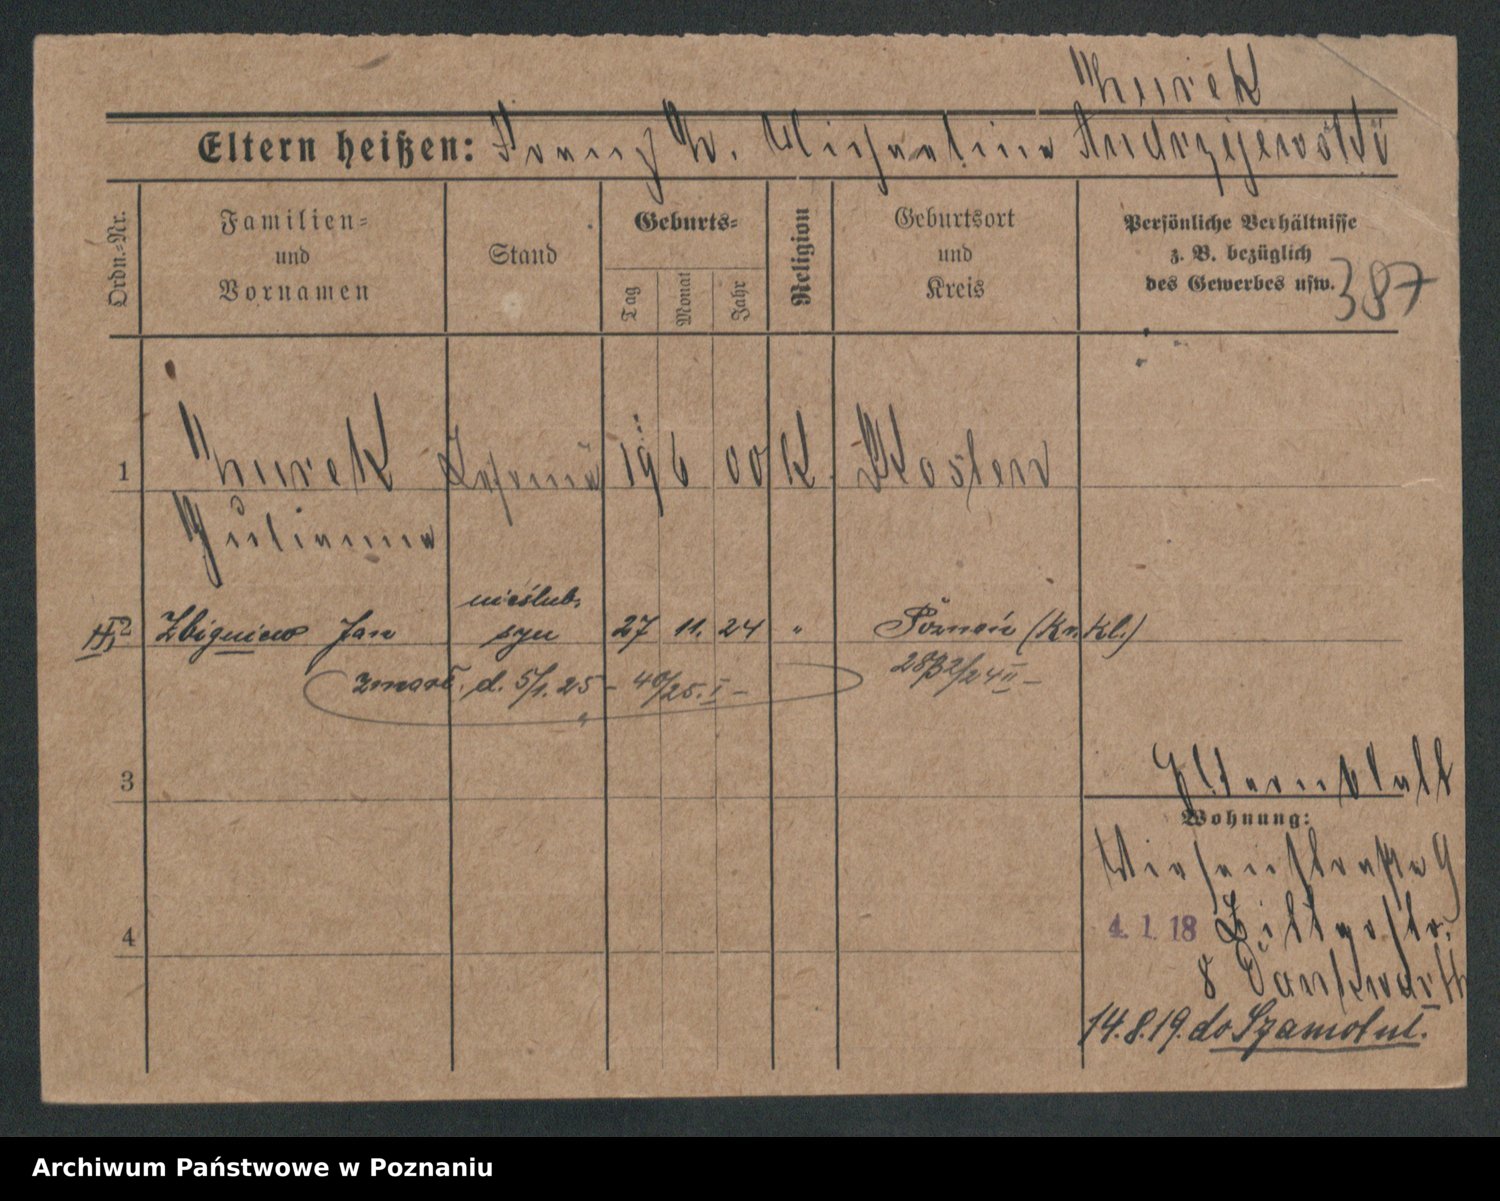 Thurek
Eltern heißen: Franz Th. Michaelina Andrzejewski
Ordn.=Nr.
Familien=
und
Vornamen
Stand
Geburts=
Tag
Monat
Jahr
Religion
Geburtsort
und
Kreis
Persönliche Verhältnisse
z. B. bezüglich
des Gewerbes usw.
387
1 Thurek 19 6 00 K. Kosten
Julianna
nieślub.
2 Zbigniew Jan syn 27 11. 24 " Poznań (Kr. Kl.)
zmarł. d. 5/1. 25 – 40/25. I –
3
Wohnung:
4
4. 1. 18
8
14. 8. 19. do Szamotuł.
Archiwum Państwowe w Poznaniu